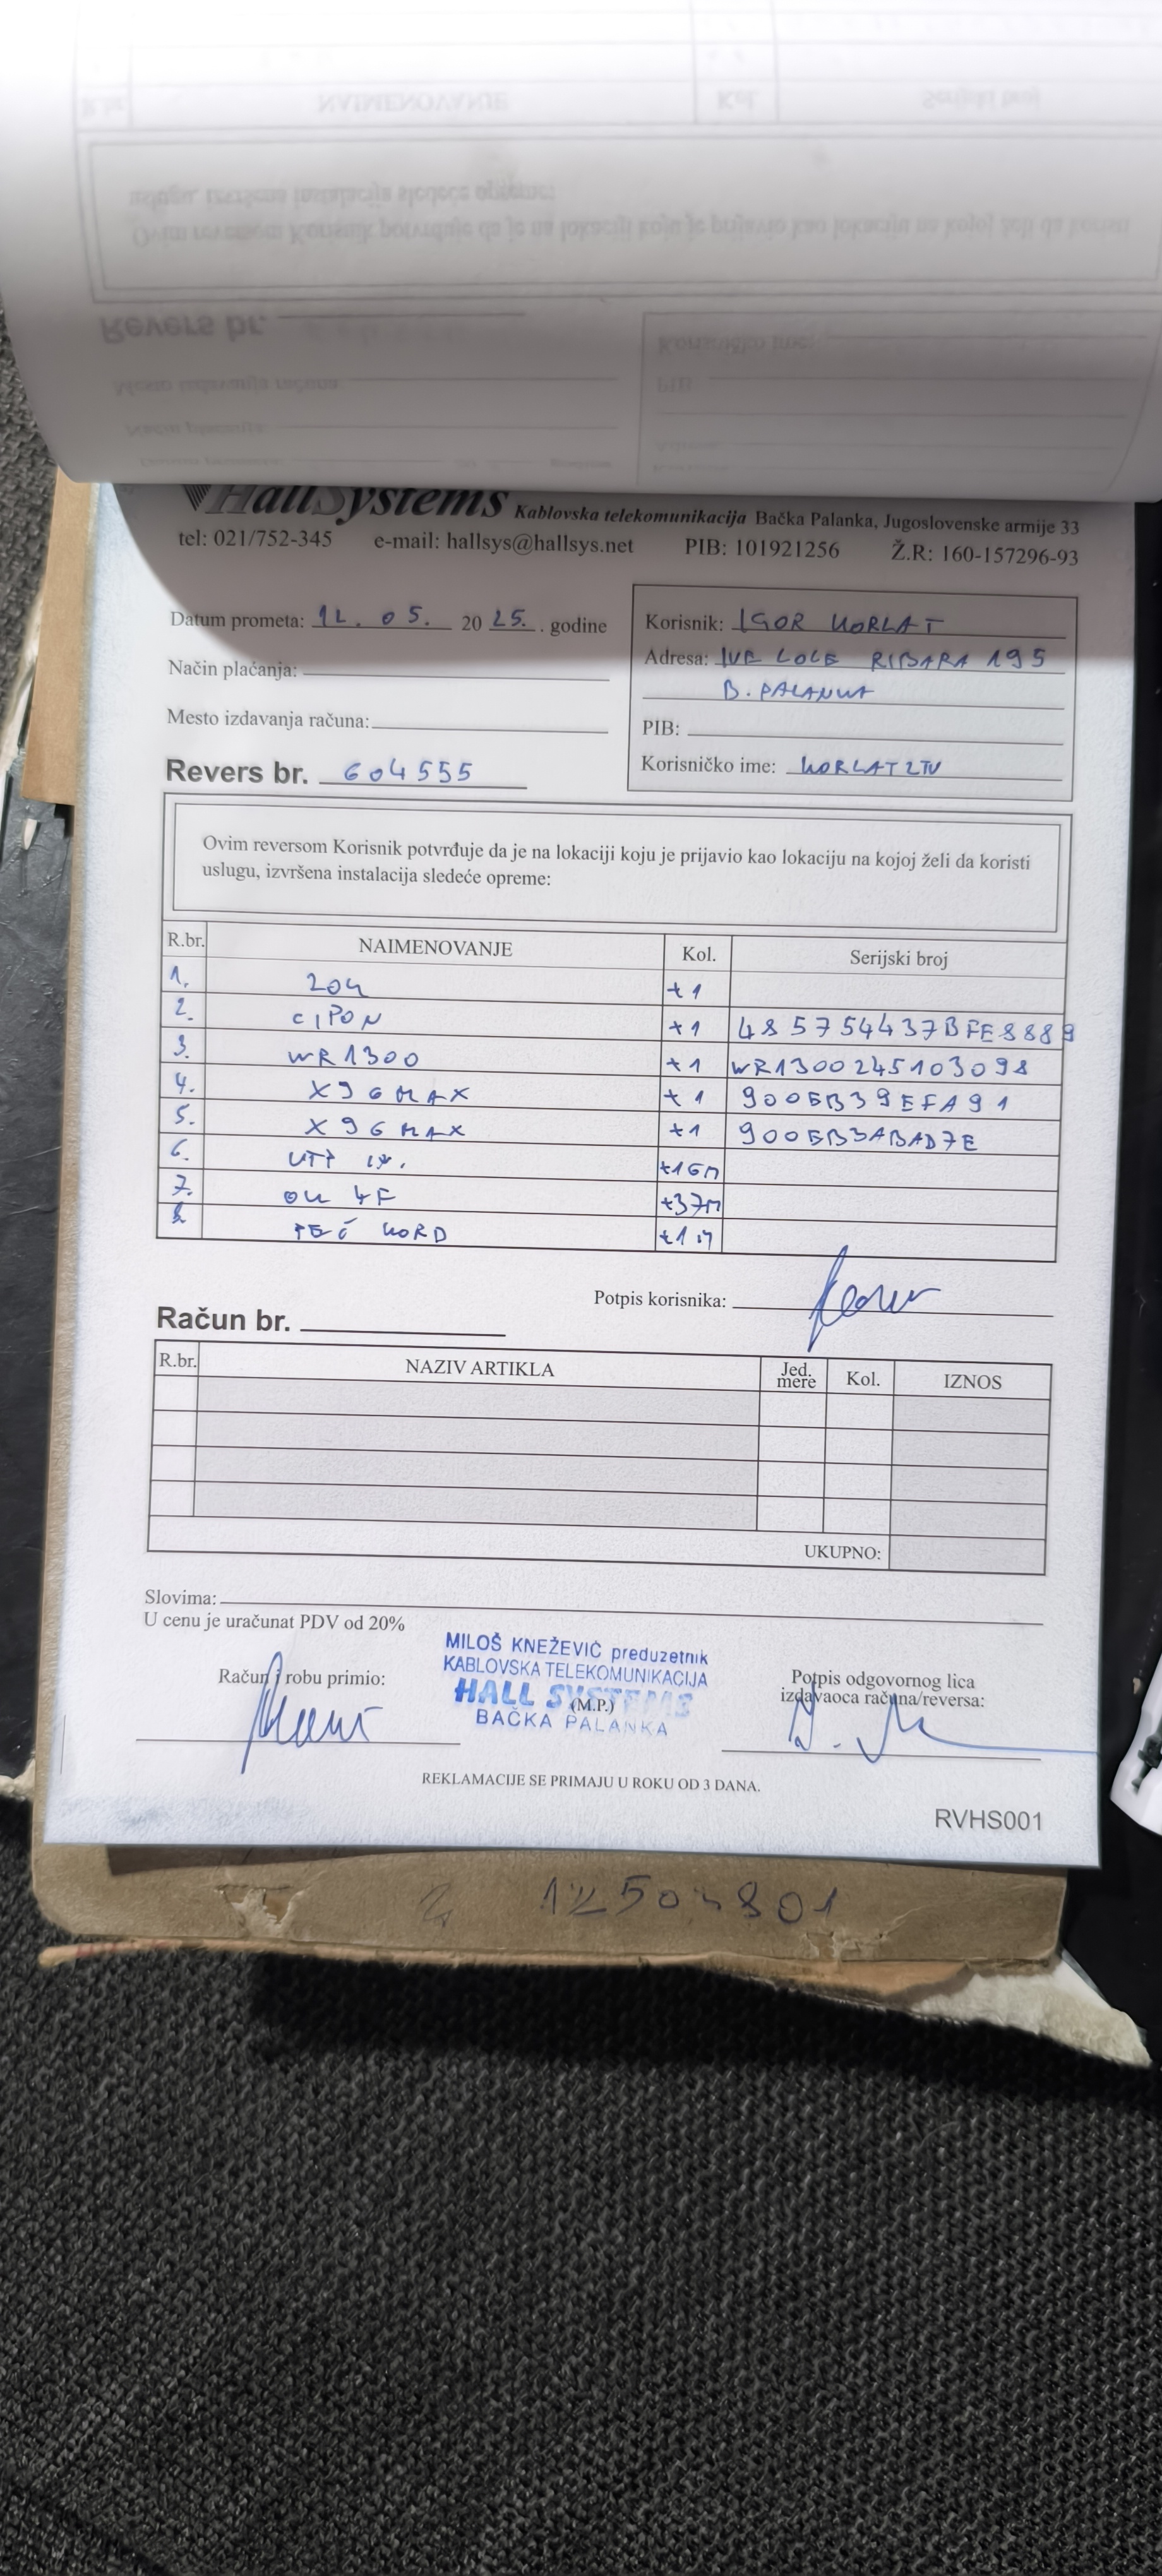 HallSystems Kablovska telekomunikacija Bačka Palanka, Jugoslovenske armije 33
tel: 021/752-345 e-mail: hallsys@hallsys.net PIB: 101921256 Ž.R: 160-157296-93
Datum prometa: 12. 05. 2025. godine
Način plaćanja:
Mesto izdavanja računa:
Revers br. 604555
Korisnik: IGOR KORLAT
Adresa: IVE LOLE RIBARA 195
B. PALANKA
PIB:
Korisničko ime: KORLATZTV
Ovim reversom Korisnik potvrđuje da je na lokaciji koju je prijavio kao lokaciju na kojoj želi da koristi
uslugu, izvršena instalacija sledeće opreme:
R.br. NAIMENOVANJE Kol. Serijski broj
1. ZOK +1
2. CIPON +1 485754437BFE8889
3. WR1300 +1 WR1300245103098
4. X96 MAX +1 900EB39EFA91
5. X96 MAX +1 900EB3ABAD7E
6. UTP +16M
7. OK 4F +37M
8. KORD
Potpis korisnika:
Račun br.
R.br. NAZIV ARTIKLA Jed. mere Kol. IZNOS
UKUPNO:
Slovima:
U cenu je uračunat PDV od 20%
MILOŠ KNEŽEVIĆ preduzetnik
KABLOVSKA TELEKOMUNIKACIJA
HALL SYSTEMS
BAČKA PALANKA
Račun i robu primio:
(M.P.)
Potpis odgovornog lica
izdavaoca računa/reversa:
REKLAMACIJE SE PRIMAJU U ROKU OD 3 DANA.
RVHS001